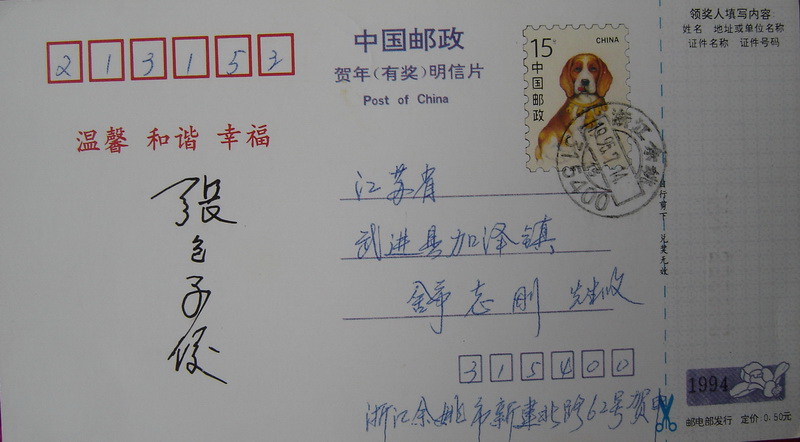 213153
温馨 和谐 幸福
中国邮政
贺年(有奖)明信片
Post of China
15分
CHINA
中国邮政
浙江余姚
315400
江苏省
武进县加泽镇
志刚 先生收
315400
浙江余姚市新建北路62号贺
领奖人填写内容:
姓名 地址或单位名称
证件名称 证件号码
自行剪下 兑奖无效
1994
邮电部发行 定价:0.50元